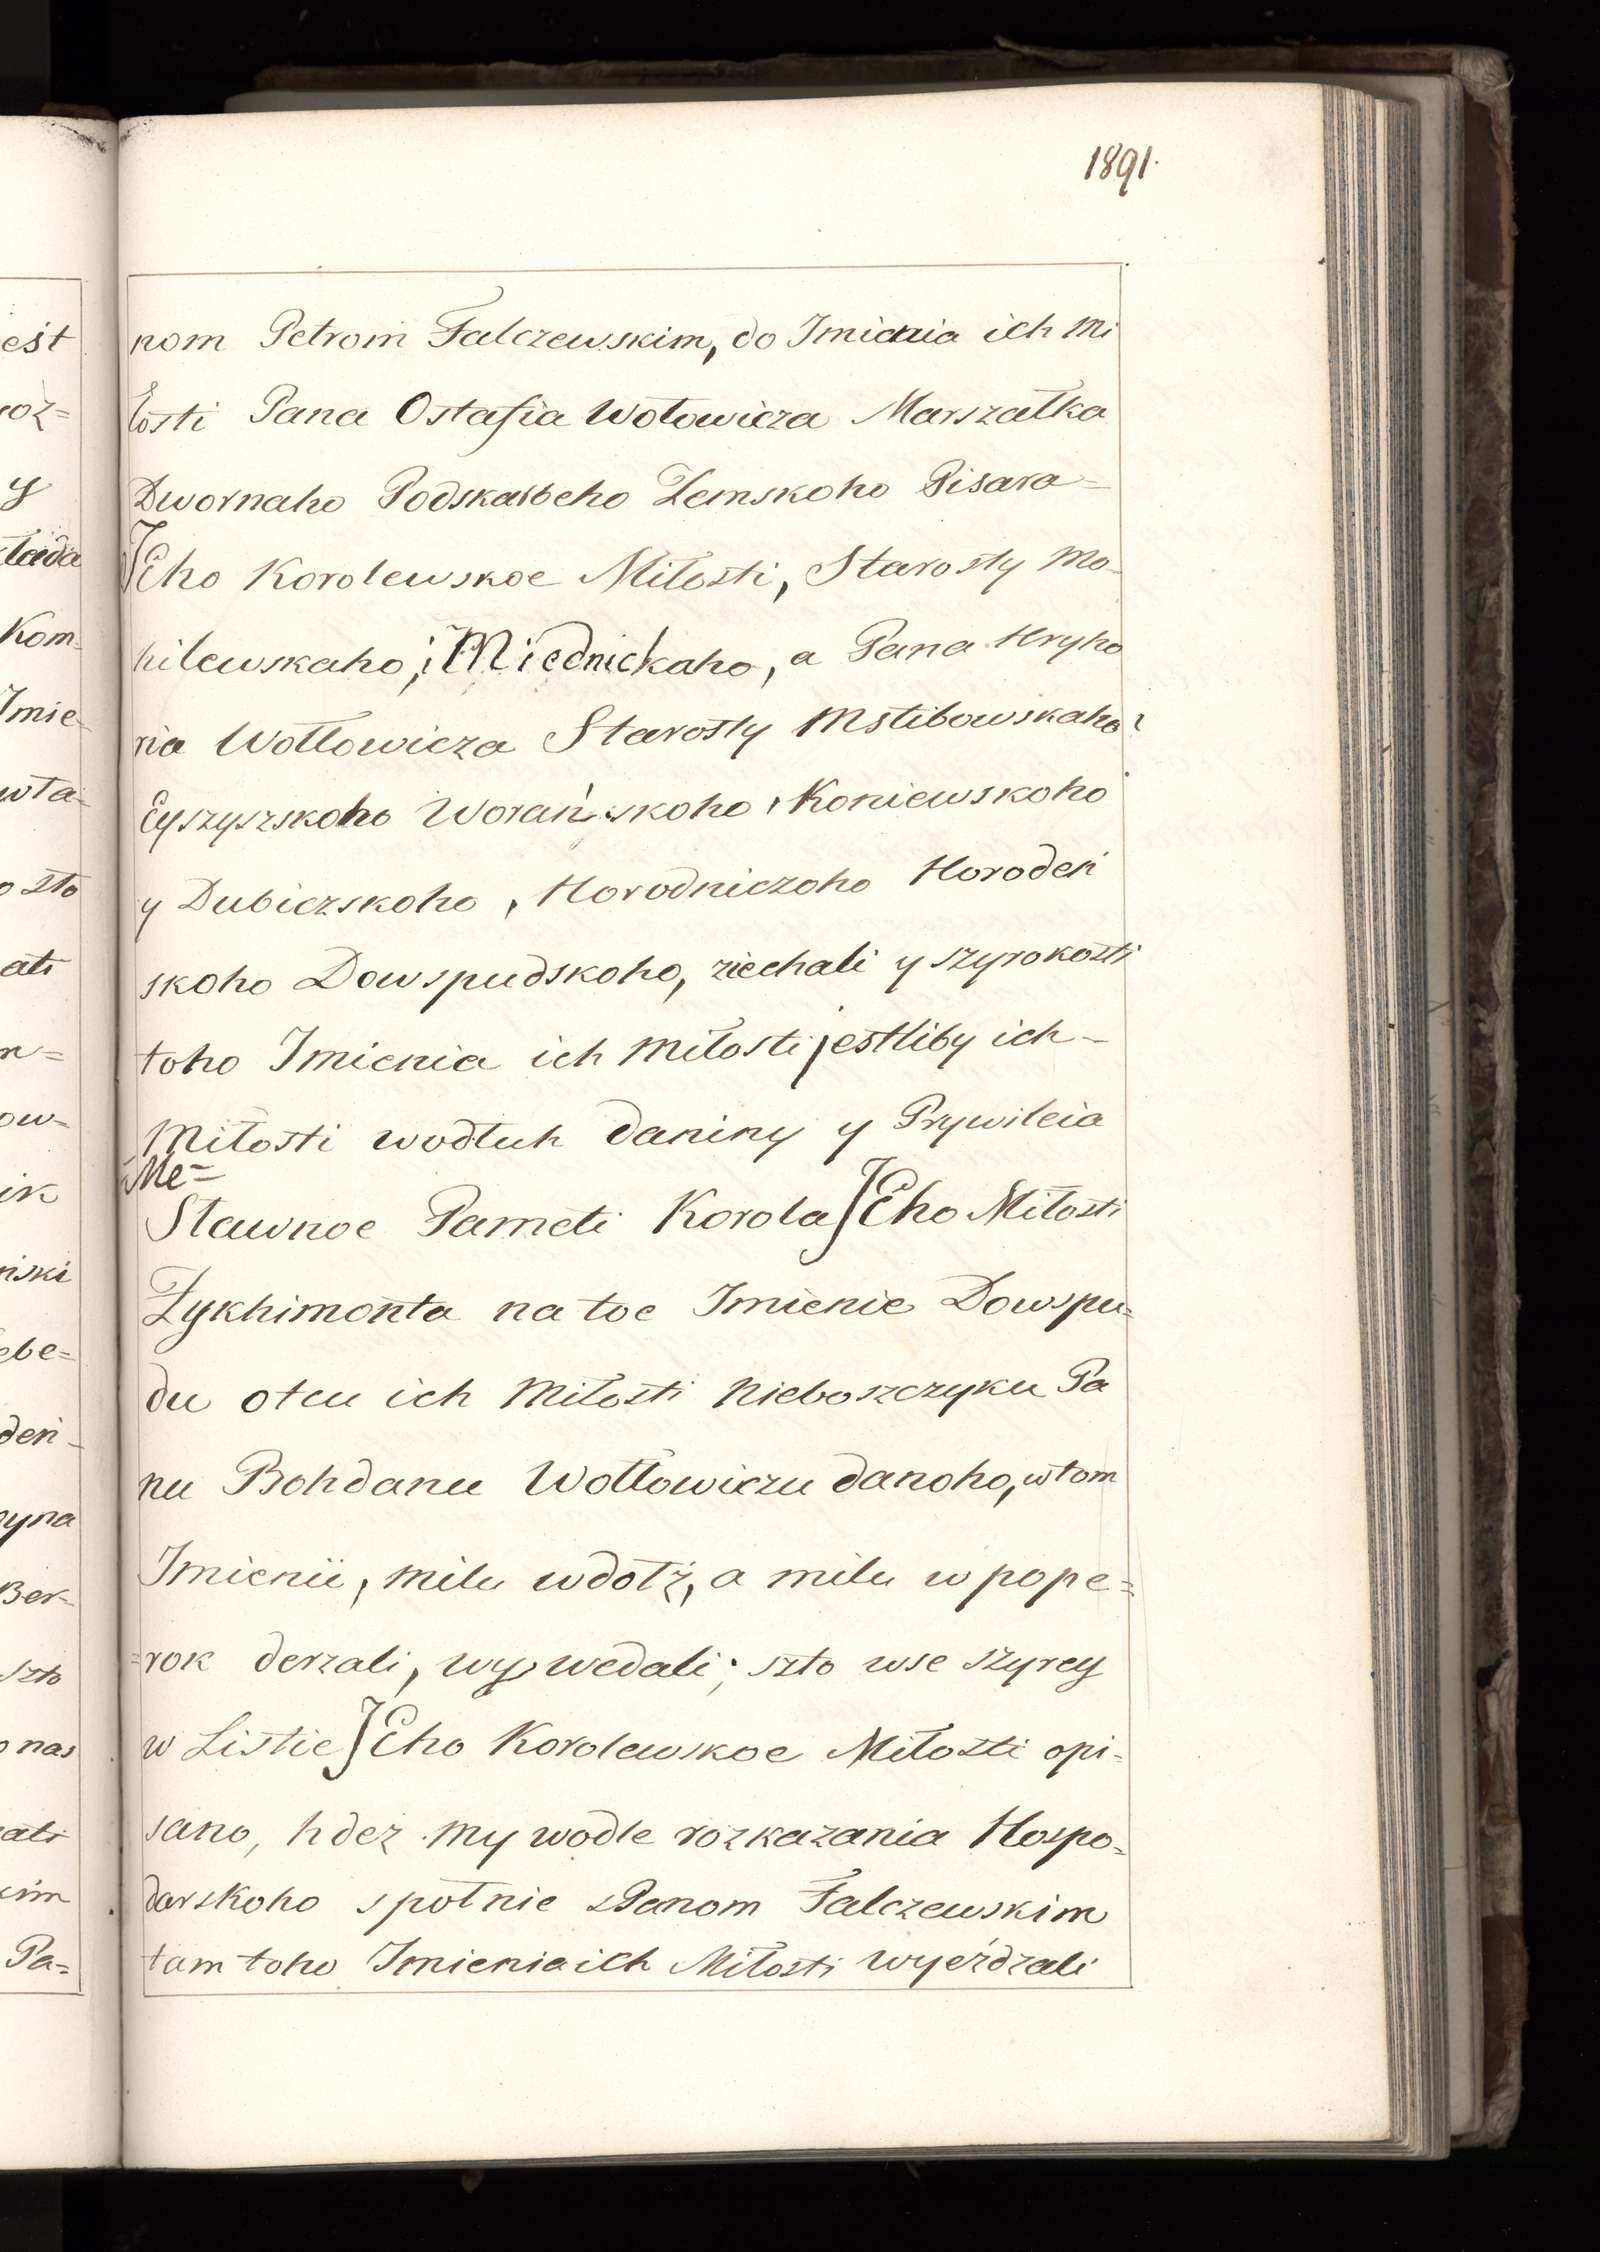 1891.
nom Petrom Falczewskim, do Imienia ich Mi
łosti Pana Ostafia Wołowicza Marszałka
Dwornaho Podskarbeho Zemskoho Pisara=
JEho Korolewskoe Miłosti, Starosty Mo=
hilewskaho, i Miednickaho, a Pana Hryho
ria Wołłowicza Starosty Mstibowskaho,
Eyszyszskoho Worańskoho, Koniewskoho
y Dubiczskoho, Horodniczoho Horodeń
skoho Dowspudskoho, ziechali y szyrokosti
toho Imienia ich Miłosti jestliby ich-
Miłosti wodłuh daniny y Prywileia
Me=
Sławnoe Pameti Korola JEho Miłosti
Zykhimonta na toe Imienie Dowspu=
du otcu ich Miłosti Nieboszczyku Pa
nu Bohdanu Wołłowiczu danoho, w tom
Imienii, milu wdołż, a milu w pope=
=rok derzali, wywedali; szto wse szyrey
w Listie JEho Korolewskoe Miłosti opi=
sano, hdez my wodle rozkazania Hospo=
darskoho społnie sPanom Falczewskim
tam toho Imienia ich Miłosti wyeżdzali
est
roz=
y
łada
Kom=
Imie=
wła=
o sto
ati
n=
ow=
ik
nski
ebe=
deń=
yna
Ber=
szto
o nas
ati
kim
Pa=